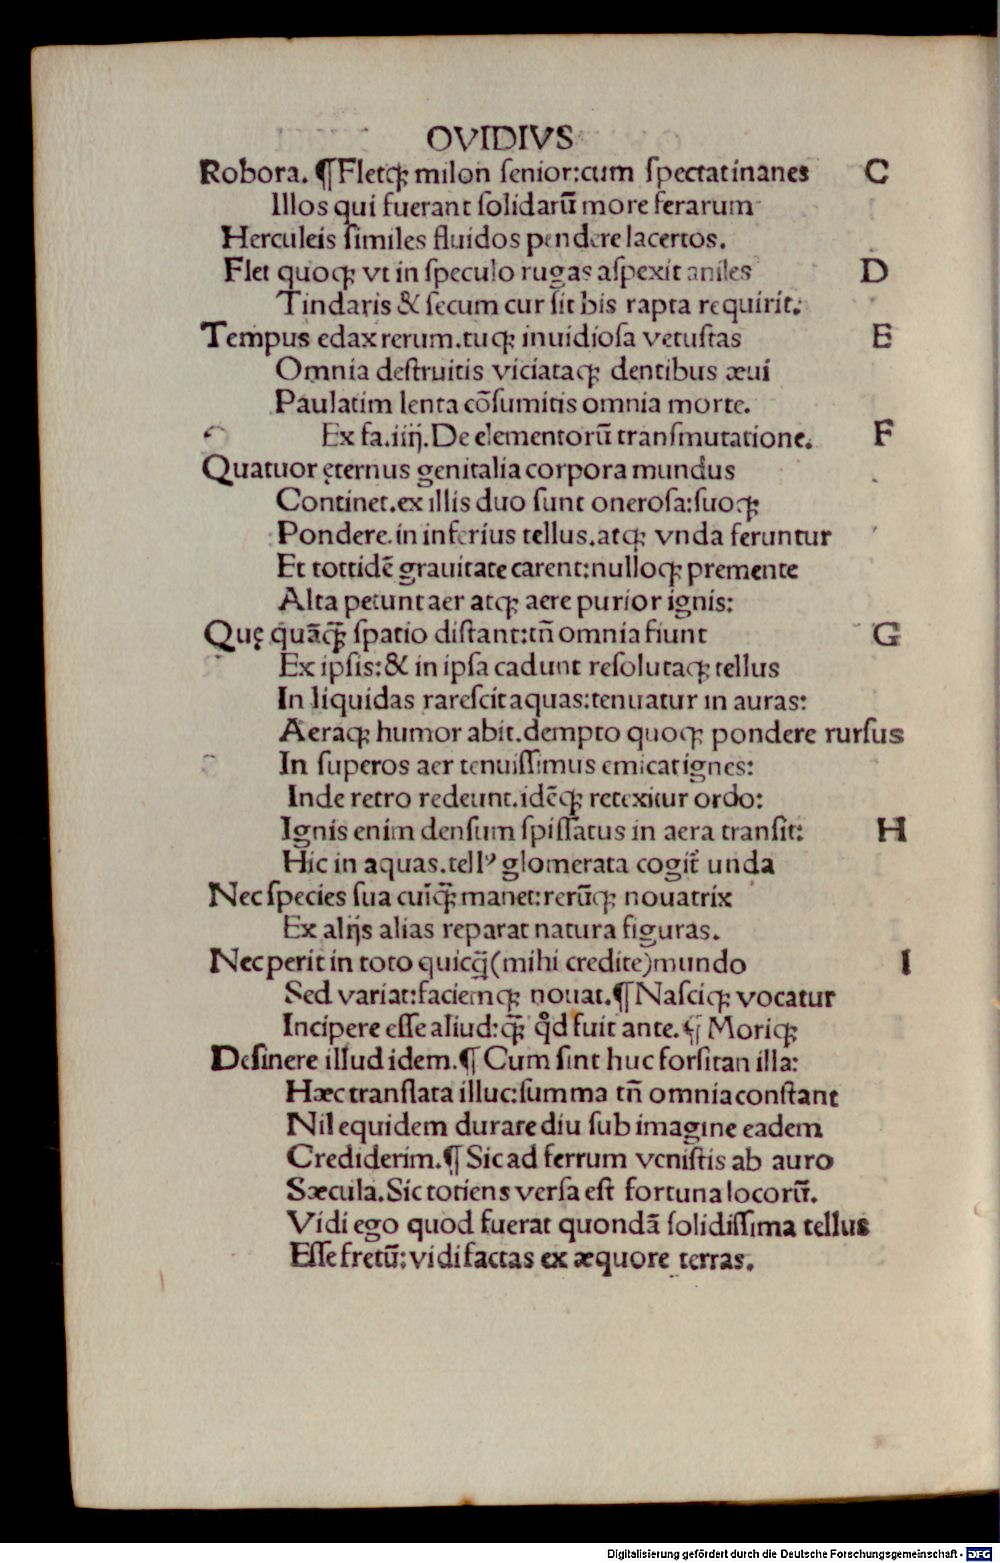 OVIDIVS
Robora. ¶ Fletqꝫ milon ſenior:cum ſpectat inanes C
Illos qui fuerant ſolidarū more ferarum
Herculeis ſimiles fluidos pendere lacertos.
Flet quoqꝫ vt in ſpeculo rugas aſpexit aniles D
Tindaris & ſecum cur ſit bis rapta requirit.
Tempus edax rerum.tuqꝫ inuidioſa vetuſtas E
Omnia deſtruitis viciataqꝫ dentibus æui
Paulatim lenta cōſumitis omnia morte.
Ex fa.iiij.De elementorū tranſmutatione. F
Quatuor ęternus genitalia corpora mundus
Continet.ex illis duo ſunt oneroſa:ſuoqꝫ
Pondere.in inferius tellus.atqꝫ vnda feruntur
Et tottidē grauitate carent:nulloqꝫ premente
Alta petunt aer atqꝫ aere purior ignis:
Quę quāqꝫ̄ ſpatio diſtant:tn̄ omnia fiunt G
Ex ipſis:& in ipſa cadunt reſolutaqꝫ tellus
In liquidas rareſcit aquas:tenuatur in auras:
Aeraqꝫ humor abit.dempto quoqꝫ pondere rurſus
In ſuperos aer tenuiſſimus emicat ignes:
Inde retro redeunt.idēqꝫ retexitur ordo:
Ignis enim denſum ſpiſſatus in aera tranſit: H
Hic in aquas.tellꝰ glomerata cogit̄ unda
Nec ſpecies ſua cuīqꝫ̄ manet:rerūqꝫ nouatrix
Ex alijs alias reparat natura figuras.
Nec perit in toto quicq̄̄(mihi credite)mundo I
Sed variat:faciemqꝫ nouat.¶ Naſciqꝫ vocatur
Incipere eſſe aliud:qꝫ̄ qͦd fuit ante.¶ Moriqꝫ
Deſinere illud idem.¶ Cum ſint huc forſitan illa:
Hæc tranſlata illuc:ſumma tn̄ omnia conſtant
Nil equidem durare diu ſub imagine eadem
Crediderim.¶ Sic ad ferrum veniſtis ab auro
Sæcula.Sic totiens verſa eſt fortuna locorū.
Vidi ego quod fuerat quondā ſolidiſſima tellus
Eſſe fretū:vidi factas ex æquore terras.
Digitalisierung gefördert durch die Deutsche Forschungsgemeinschaft - DFG